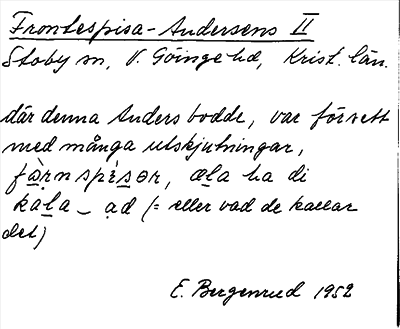 Frontespisa-Andersens II
Stoby sn, V. Göinge hd, Krist. län.
där denna Anders bodde, var försett
med många utskjutningar,
fa̱rnspi̱sər, æḻa ha di
kaḻa – ạd (= eller vad de kallar
det)
E. Bergenrud 1952